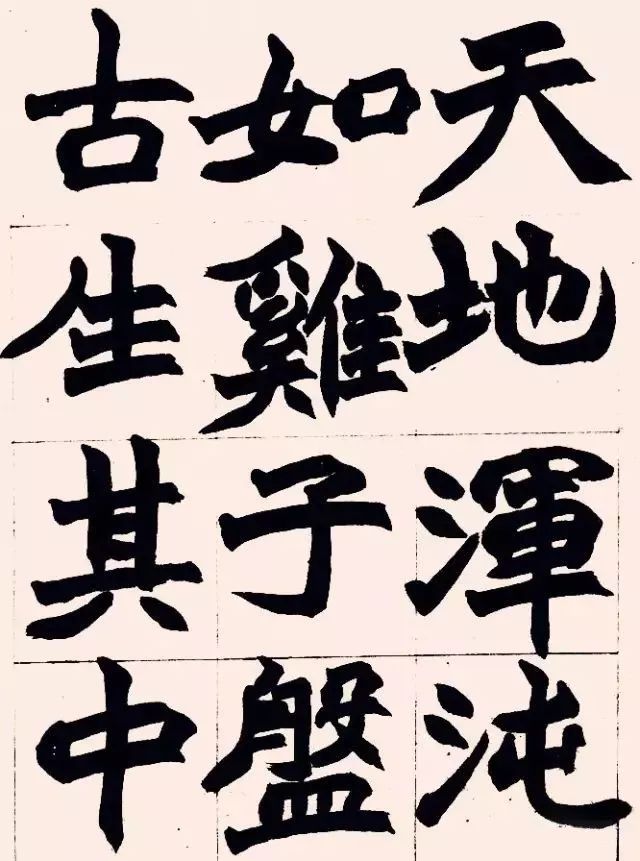 天地渾沌
如雞子盤
古生其中